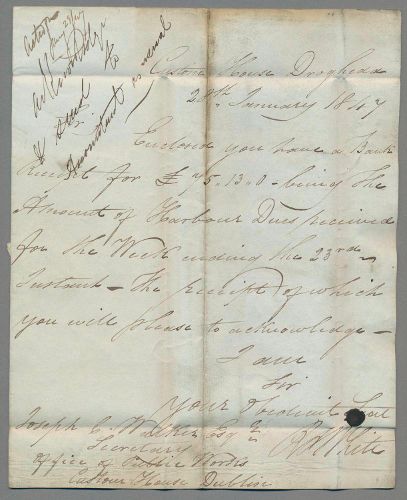 Acknowledge
& send to
Accountant as usual
Custom House Drogheda
28th January 1847
Sir
Enclosed you have a Bank
Receipt for £75.13.0 - being the
Amount of Harbour Dues received
for the Week ending the 23rd
Instant - the receipt of which
you will please to acknowledge -
I am
Sir
your Obedient Servt
White
Joseph C. Walker Esqr
Secretary
Office of Public Works
Custom House Dublin